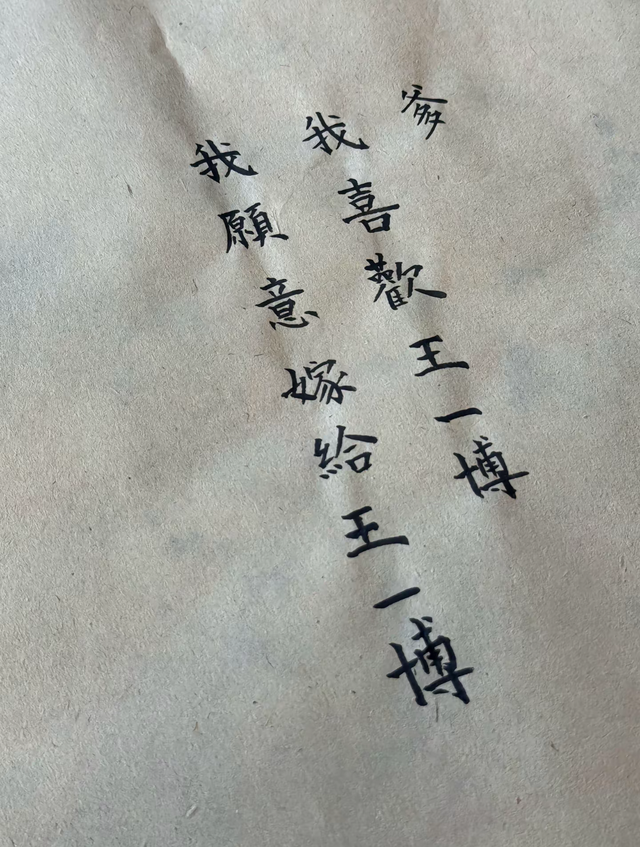 爹
我喜歡王一博
我願意嫁給王一博